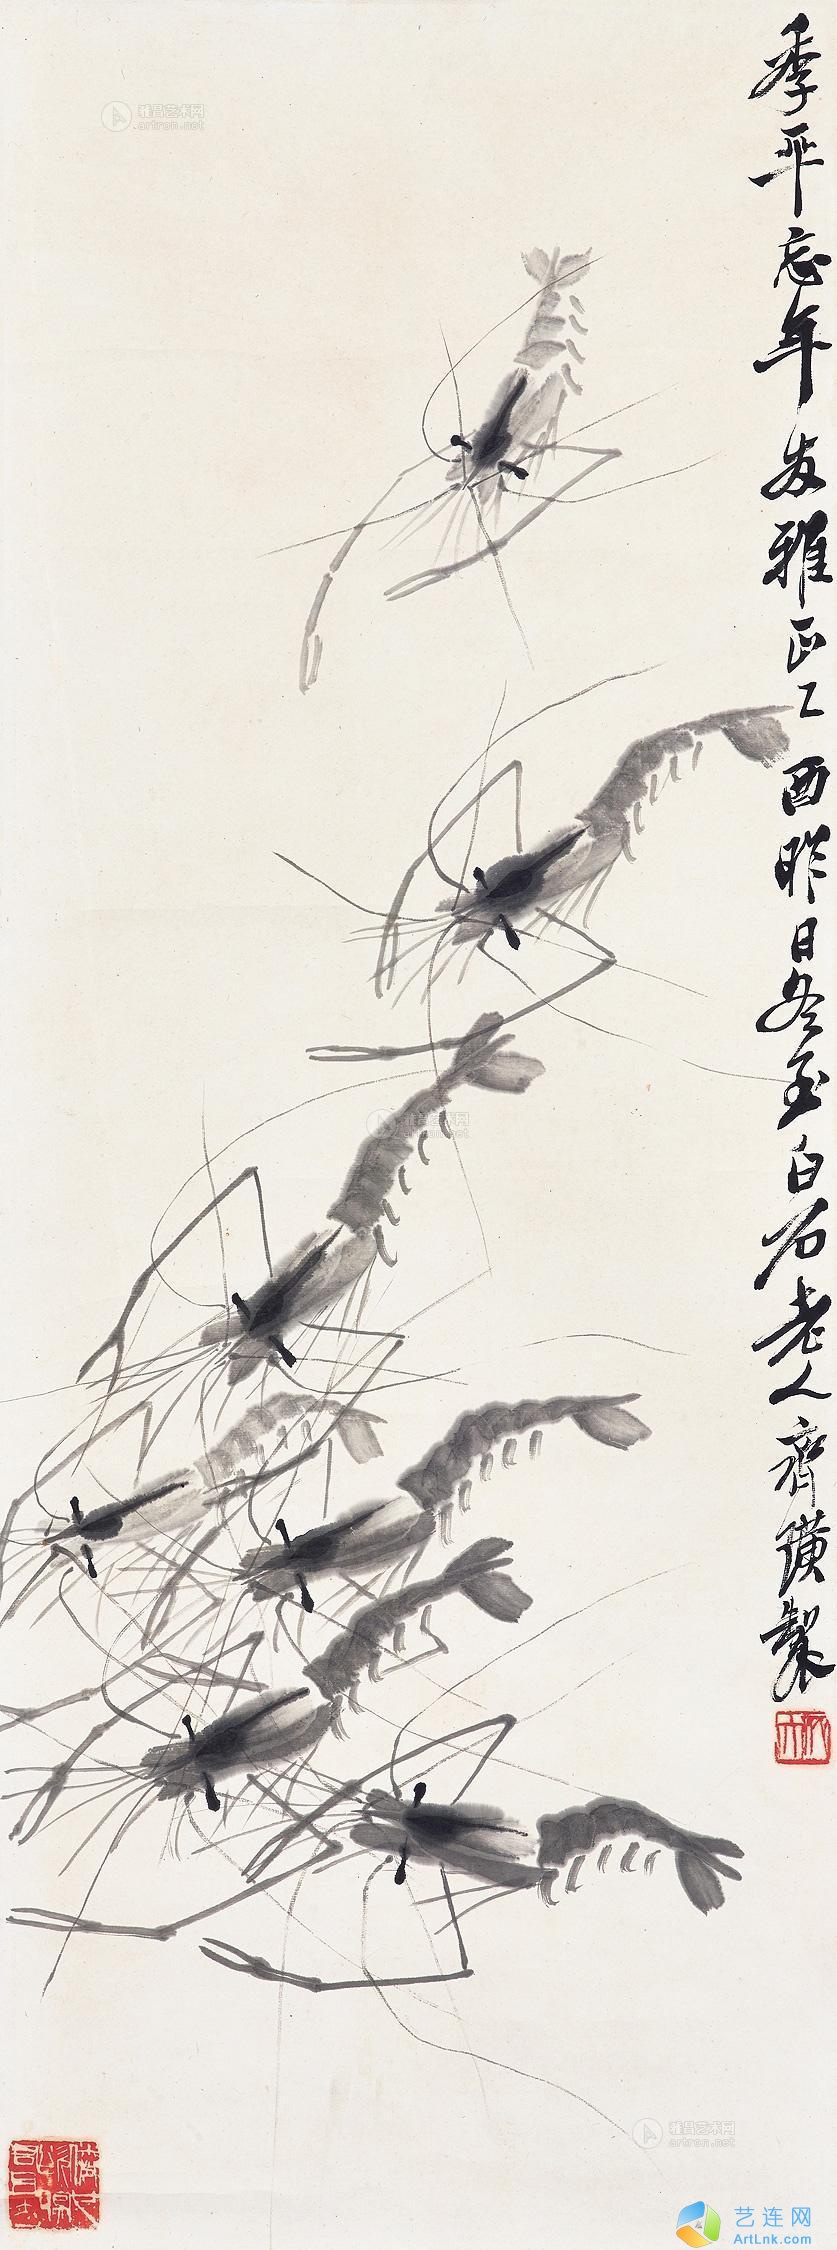 季平忘年友雅正乙酉昨日冬至白石老人齊璜製
雅昌艺术网
artron.net
雅昌艺术网
artron.net
雅昌艺术网
artron.net
艺连网
ArtLnk.com